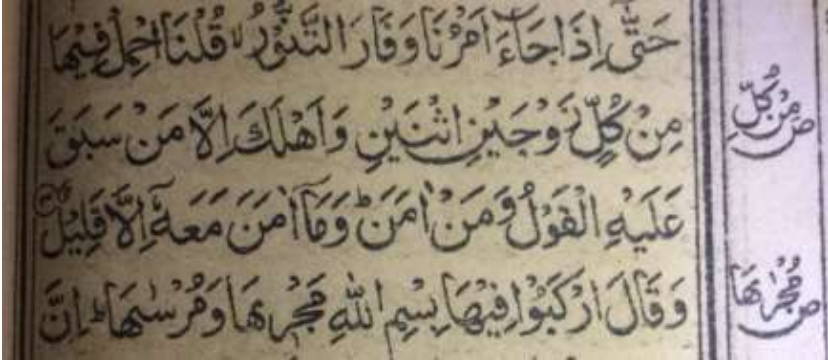 حَتّٰٓى اِذَا جَآءَ اَمْرُنَا وَفَارَ التَّنُّوْرُ ۙ قُلْنَا احْمِلْ فِيْهَا
مِنْ كُلٍّ زَوْجَيْنِ اثْنَيْنِ وَاَهْلَكَ اِلَّا مَنْ سَبَقَ
عَلَيْهِ الْقَوْلُ وَمَنْ اٰمَنَ ؕ وَمَآ اٰمَنَ مَعَهٗٓ اِلَّا قَلِيْلٌ
وَقَالَ ارْكَبُوْا فِيْهَا بِسْمِ اللّٰهِ مَجْرٖىهَا وَمُرْسٰىهَا ؕ اِنَّ
مِنْ كُلِّ
ص
مُجْرٰىهَا
ص